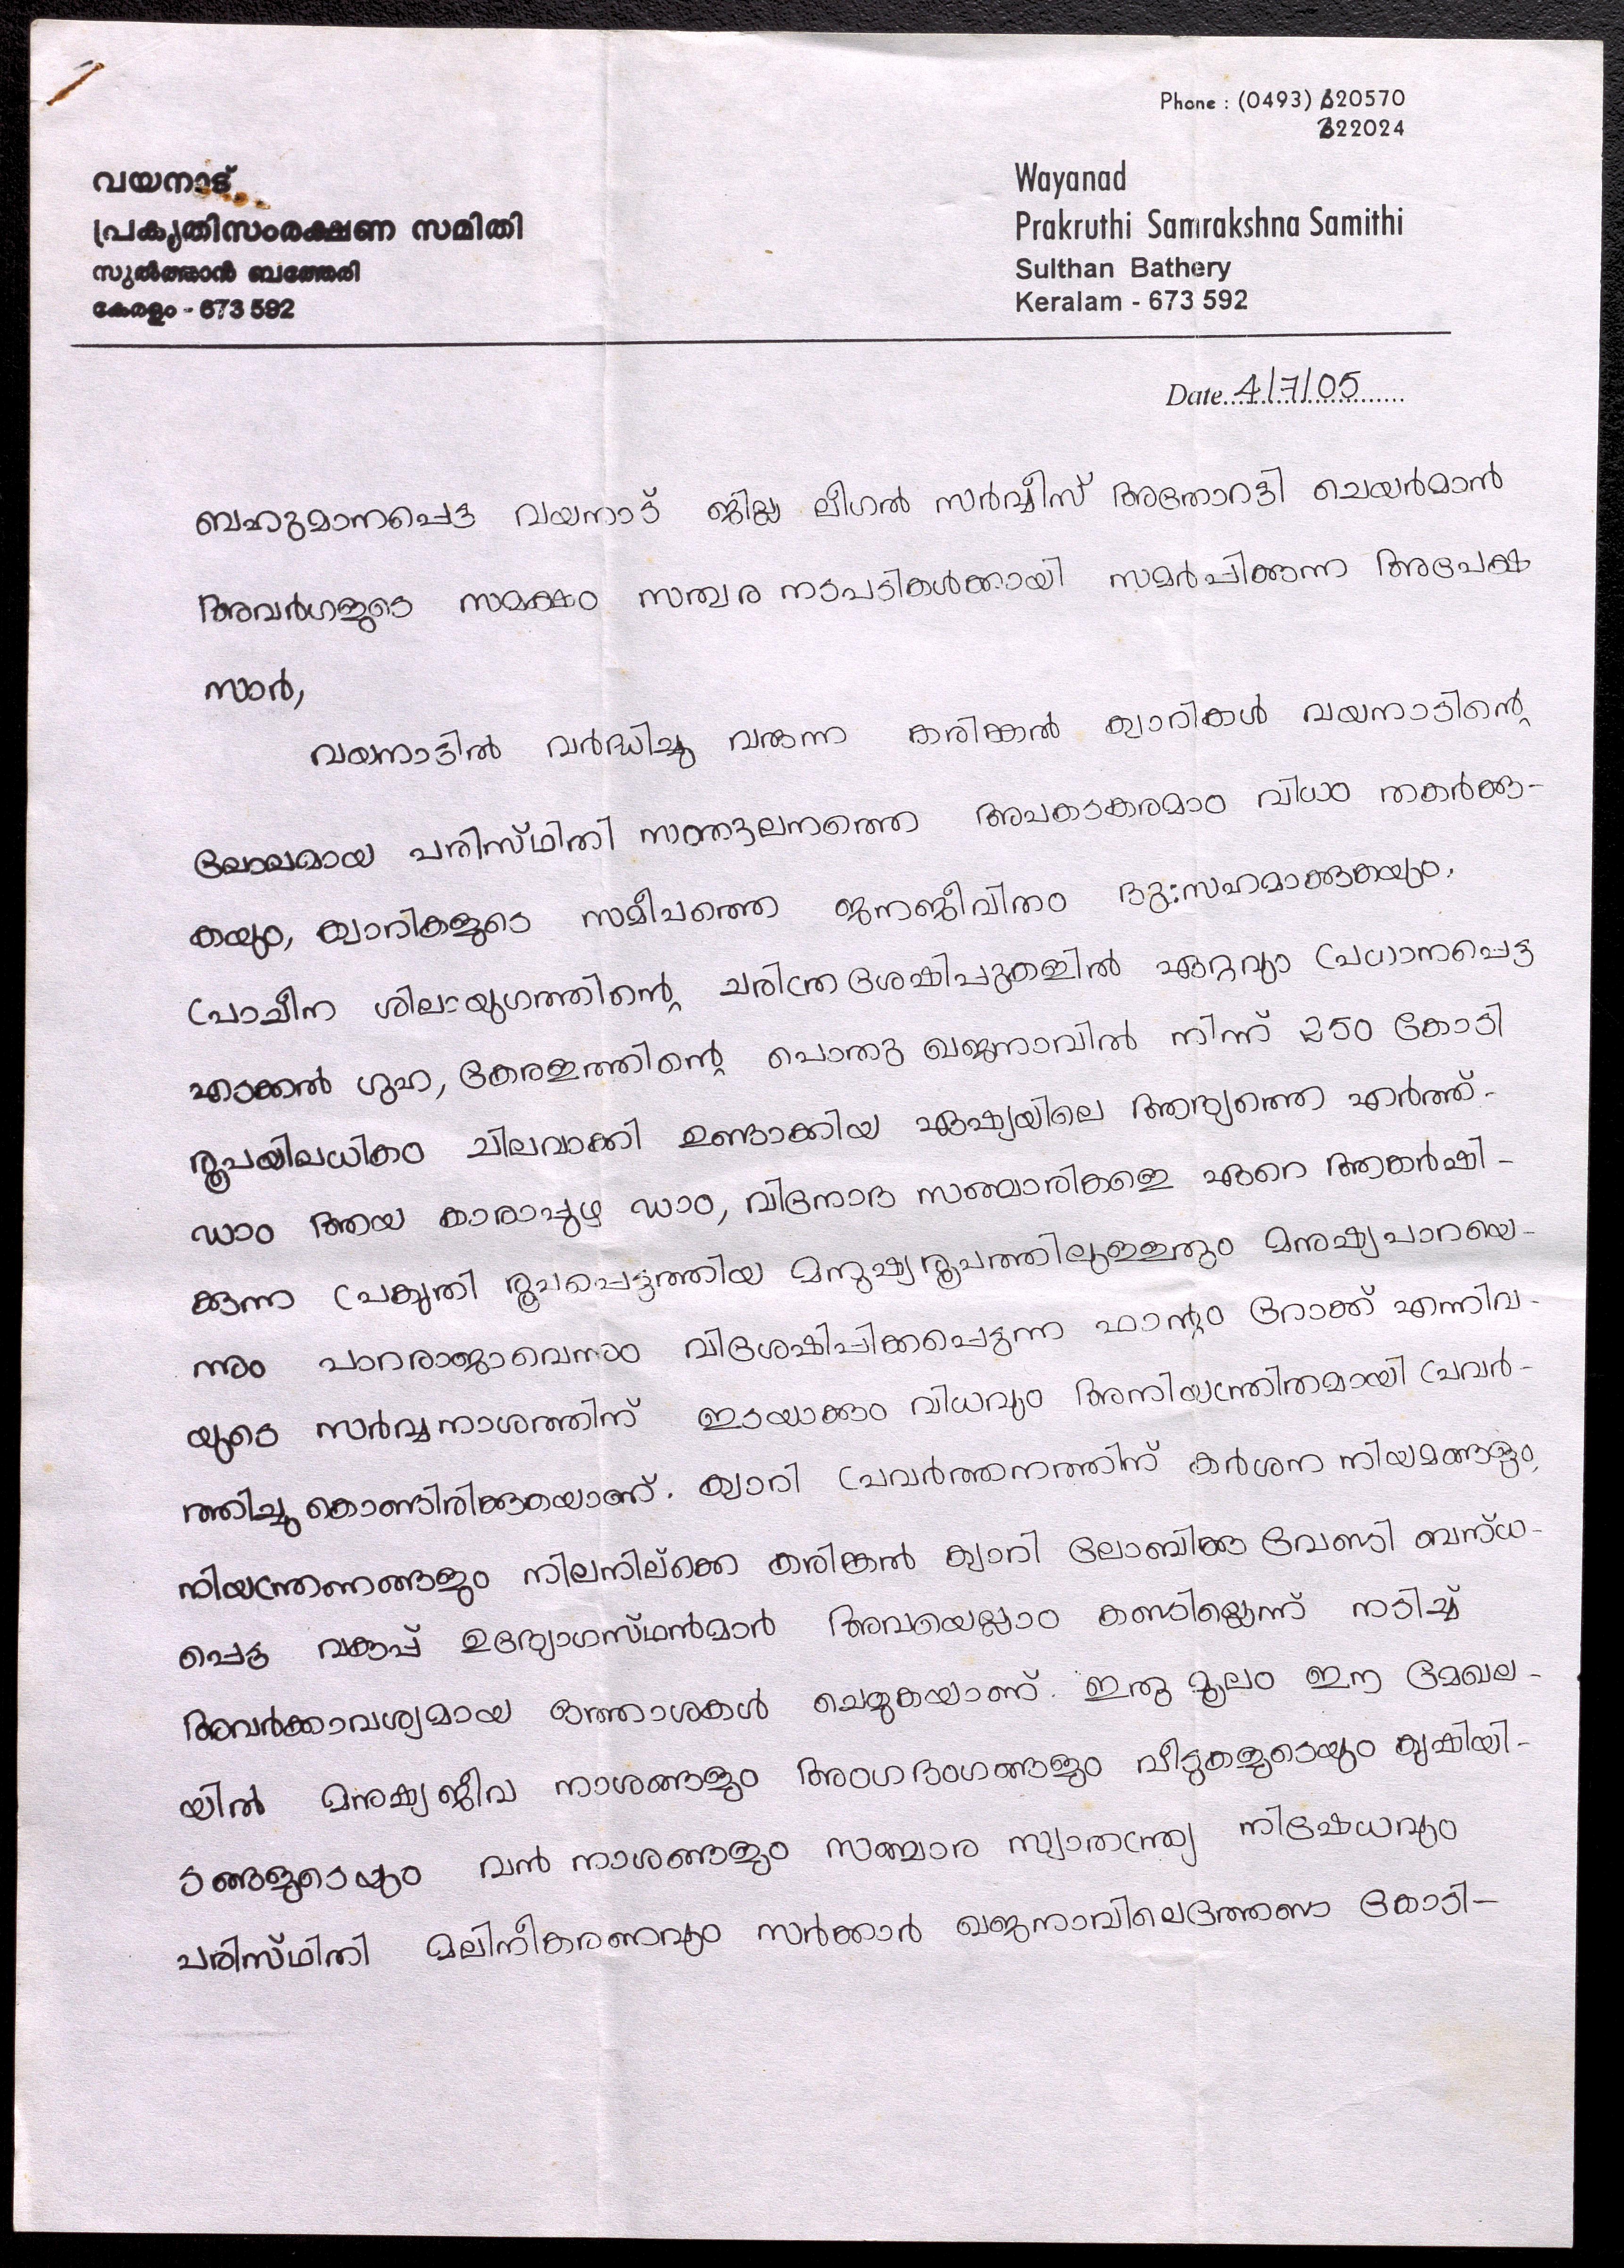 Phone : (0493) 620570
622024
വയനാട്
പ്രകൃതിസംരക്ഷണ സമിതി
സുൽത്താൻ ബത്തേരി
കേരളം - 673 592
Wayanad
Prakruthi Samrakshna Samithi
Sulthan Bathery
Keralam - 673 592
Date 4/7/05
ബഹുമാനപ്പെട്ട വയനാട് ജില്ല ലീഗൽ സർവ്വീസ് അതോറട്ടി ചെയർമാൻ
അവർഗളുടെ സമക്ഷം സത്വര നടപടികൾക്കായി സമർപ്പിക്കുന്ന അപേക്ഷ
സാർ,
വയനാട്ടിൽ വർദ്ധിച്ചു വരുന്ന കരിങ്കൽ ക്വാറികൾ വയനാടിന്റെ
ലോലമായ പരിസ്ഥിതി സന്തുലനത്തെ അപകടകരമാം വിധം തകർക്കു-
കയും, ക്വാറികളുടെ സമീപത്തെ ജനജീവിതം ദു:സഹമാക്കുകയും,
പ്രാചീന ശിലായുഗത്തിന്റെ ചരിത്ര ശേഷിപ്പുകളിൽ ഏറ്റവും പ്രധാനപ്പെട്ട
എടക്കൽ ഗുഹ, കേരളത്തിന്റെ പൊതു ഖജനാവിൽ നിന്ന് 250 കോടി
രൂപയിലധികം ചിലവാക്കി ഉണ്ടാക്കിയ ഏഷ്യയിലെ ആദ്യത്തെ എർത്ത്-
ഡാം ആയ കാരാപ്പുഴ ഡാം, വിനോദ സഞ്ചാരികളെ ഏറെ ആകർഷി-
ക്കുന്ന പ്രകൃതി രൂപപ്പെടുത്തിയ മനുഷ്യരൂപത്തിലുള്ളതും മനുഷ്യപാറയെ-
ന്നും പാറരാജാവെന്നും വിശേഷിപ്പിക്കപ്പെടുന്ന ഫാന്റം റോക്ക് എന്നിവ-
യുടെ സർവ്വനാശത്തിന് ഇടയാക്കും വിധവും അനിയന്ത്രിതമായി പ്രവർ-
ത്തിച്ചു കൊണ്ടിരിക്കുകയാണ്. ക്വാറി പ്രവർത്തനത്തിന് കർശന നിയമങ്ങളും,
നിയന്ത്രണങ്ങളും നിലനില്ക്കെ കരിങ്കൽ ക്വാറി ലോബിക്കു വേണ്ടി ബന്ധ-
പ്പെട്ട വകുപ്പ് ഉദ്യോഗസ്ഥൻമാർ അവയെല്ലാം കണ്ടില്ലെന്ന് നടിച്ച്
അവർക്കാവശ്യമായ ഒത്താശകൾ ചെയ്യുകയാണ്. ഇതു മൂലം ഈ മേഖല-
യിൽ മനുഷ്യജീവ നാശങ്ങളും അംഗഭംഗങ്ങളും വീടുകളുടെയും കൃഷിയി-
ടങ്ങളുടെയും വൻ നാശങ്ങളും സഞ്ചാര സ്വാതന്ത്ര്യ നിഷേധവും
പരിസ്ഥിതി മലിനീകരണവും സർക്കാർ ഖജനാവിലെത്തേണ്ട കോടി-